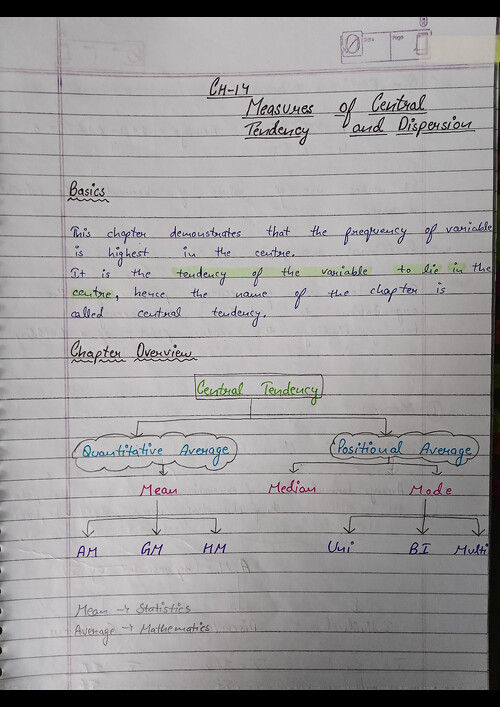 Date
Page
CH-14
Measures of Central
Tendency and Dispersion
Basics
This chapter demonstrates that the frequency of variable
is highest in the centre.
It is the tendency of the variable to lie in the
centre, hence the name of the chapter is
called central tendency.
Chapter Overview
Central Tendency
Quantitative Average Positional Average
Mean Median Mode
AM GM HM Uni BI Multi
Mean → Statistics
Average → Mathematics